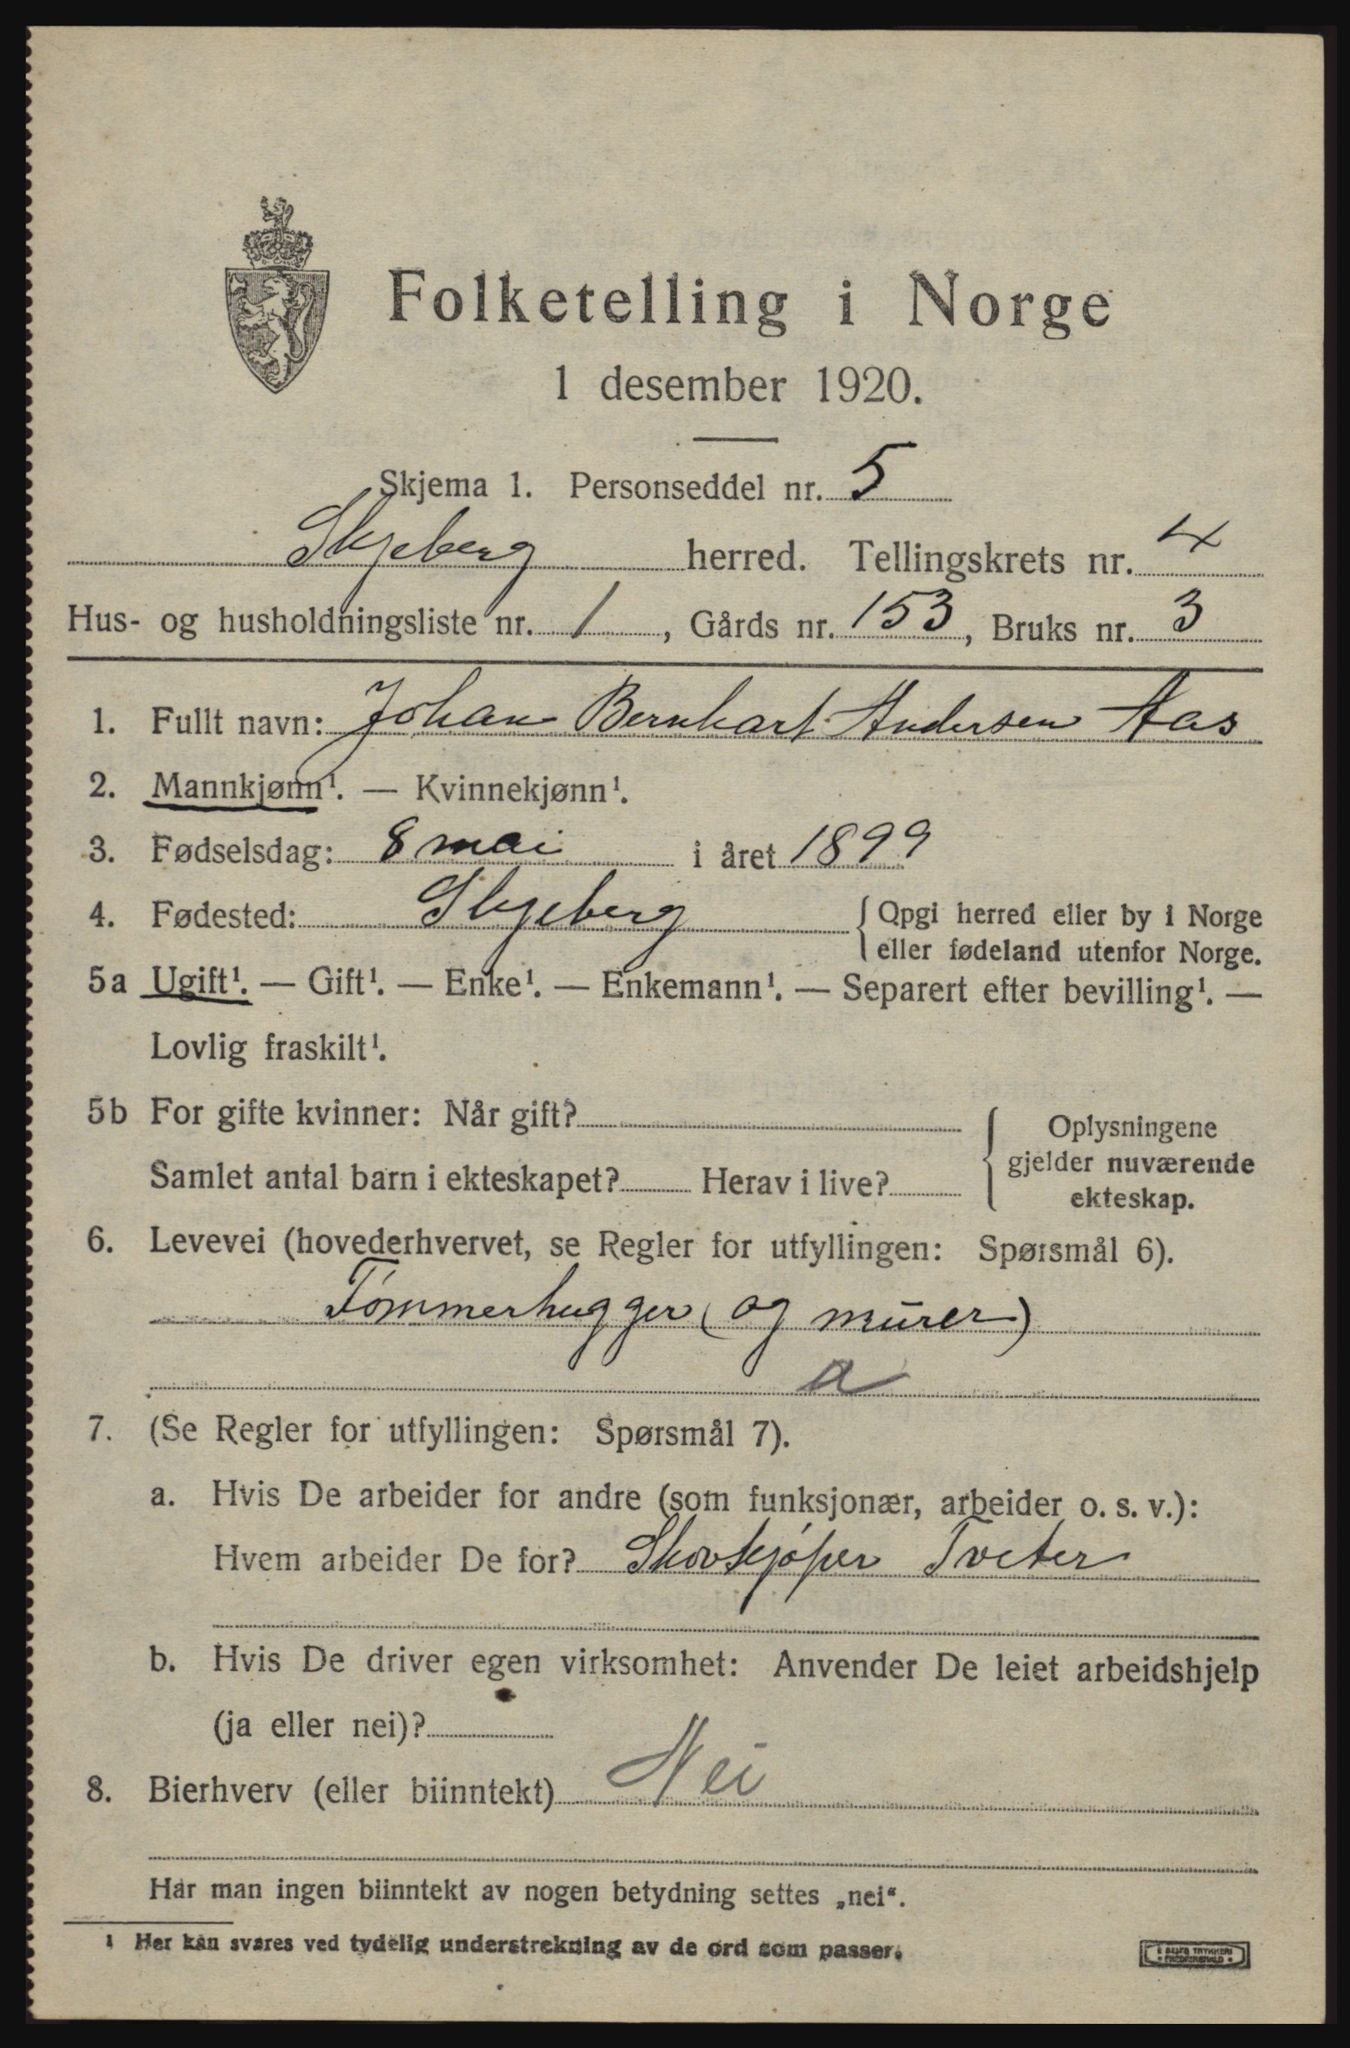 Folketelling i Norge
1 desember 1920.
Skjema 1. Personseddel nr. 5
Skjeberg herred. Tellingskrets nr. 4
Hus- og husholdningsliste nr. 1, Gårds nr. 153, Bruks nr. 3
1. Fullt navn: Johan Bernhart Andersen Aas
2. Mannkjønn¹. — Kvinnekjønn¹.
3. Fødselsdag: 8 mai i året 1899
4. Fødested: Skjeberg { Opgi herred eller by i Norge
eller fødeland utenfor Norge.
5a Ugift¹. — Gift¹. — Enke¹. — Enkemann¹. — Separert efter bevilling¹. —
Lovlig fraskilt¹.
5b For gifte kvinner: Når gift?
Samlet antal barn i ekteskapet? Herav i live?
Oplysningene
gjelder nuværende
ekteskap.
6. Levevei (hovederhvervet, se Regler for utfyllingen: Spørsmål 6).
Tømmerhugger (og murer)
a
7. (Se Regler for utfyllingen: Spørsmål 7).
a. Hvis De arbeider for andre (som funksjonær, arbeider o. s. v.):
Hvem arbeider De for? Skovkjøper Tveter
b. Hvis De driver egen virksomhet: Anvender De leiet arbeidshjelp
(ja eller nei)?
8. Bierhverv (eller biinntekt) Nei
Har man ingen biinntekt av nogen betydning settes „nei“.
¹ Her kan svares ved tydelig understrekning av de ord som passer.
TRYKKERI
FREDRIKSHALD